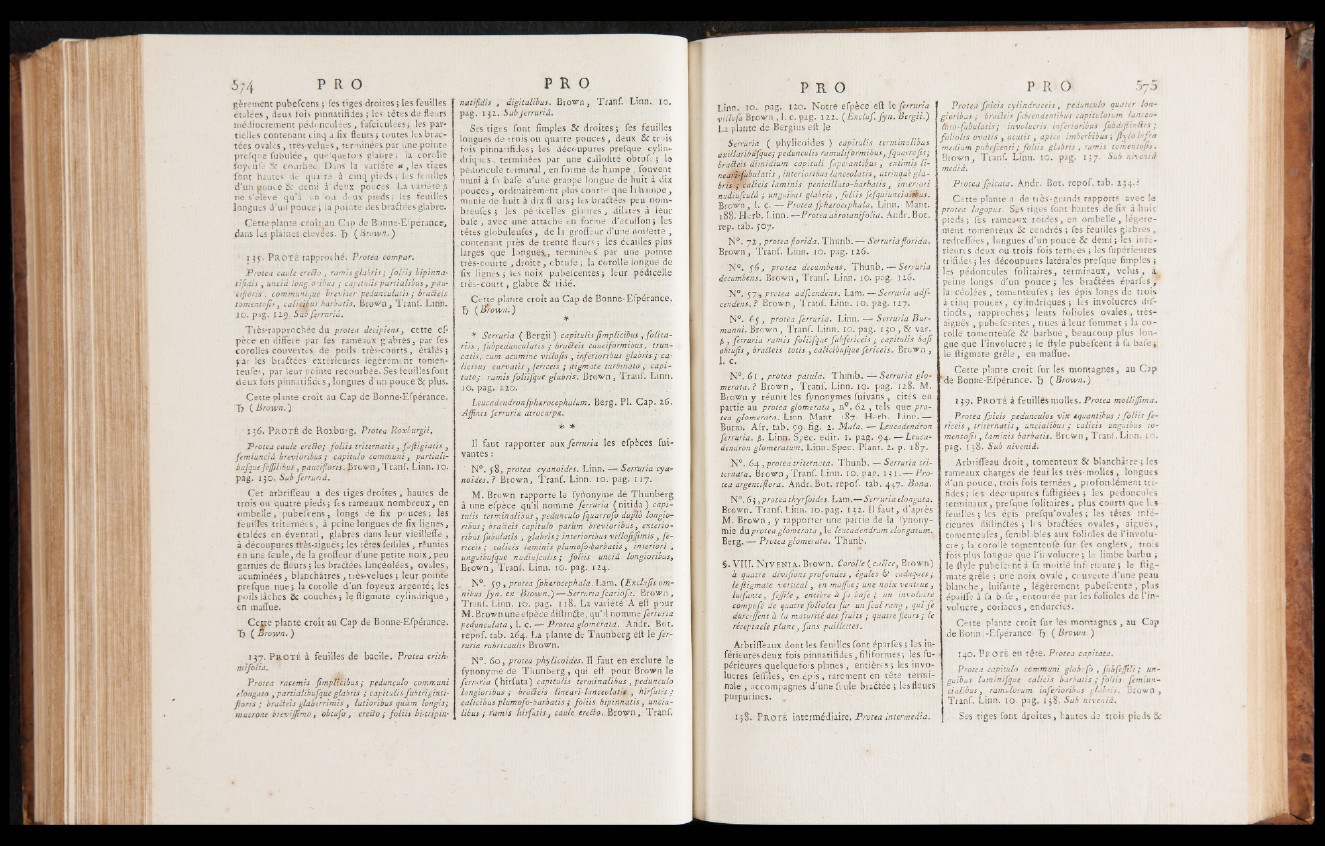 574 P R O
gèrement pubescens ; ses tiges droites ; les feuilles
étalées, deux fois pinnatifides ; les têtes de fleurs
médiocrement pédonculées, fasciculées ; les par-
tielles contenant cinq à six fleurs ; toutes les brac-
tées ovales, très-velues, terminées par une pointe
presque subulée, quelquefois glabre ; la corolle
soyeuse & courbée. Dans la variété α, les tiges
sont hautes de quatre à cinq pieds ; les feuilles
d'un pouce & demi à deux pouces. La variété β
ne s'élève qu'à un ou deux pieds ; les feuilles
longues d'un pouce ; la pointe des bractées glabre.
Cette plante croît au Cap de Bonne-Espérance,
dans les plaines élevées. ♄ (Brown.)
135. PROTÉ rapproché. Protea compar.
Protea caule erecto, ramis glabris ; foliis bipinna-
tifidis, uncià longioribus ; capitulis partialibus, pau-
cifloris, communique breviter pedunculatis ; bracteis
tomentosis, calicibus barbatis. Brown, Trans. Linn.
10. pag. 129. Sub serruriâ.
Très-rapprochée du protea decipiens, cette es-
pèce en diffère par ses rameaux glabres, par ses
corolles couvertes de poils très-courts, étalés ;
par les bractées extérieures légèrement tomen-
teuses, par leur pointe recourbée. Ses feuilles sont
deux fois pinnatifides, longues d'un pouce & plus.
Cette plante croît au Cap de Bonne-Espérance.
♄ (Brown.)
136. PROTÉ de Roxburg. Protea Roxburgii.
Protea caule erecto ; foliis triternatis, fastigiatis,
semiuncià brevioribus ; capitulo communi, partiali-
busque sessilibus, paucifloris. Brown, Trans. Linn. 10.
pag. 130. Sub serruriâ.
Cet arbrisseau a des tiges droites, hautes de
trois ou quatre pieds ; ses rameaux nombreux, en
ombelle, pubescens, longs de six pouces ; les
feuilles triternées, à peine longues de six lignes,
étalées en éventail, glabres dans leur vieillesse,
à découpures très-aiguës ; les têtes sessiles, réunies
en une seule, de la grosseur d'une petite noix, peu
garnies de fleurs ; les bractées lancéolées, ovales,
acuminées, blanchâtres, très-velues ; leur pointe
presque nue ; la corolle d'un soyeux argenté ; les
poils lâches & couchés ; le stigmate cylindrique,
en massue.
Cette plante croît au Cap de Bonne-Espérance.
♄ (Brown.)
137. PROTÉ à feuilles de bacile. Protea crith-
mifolia.
Protea racemis simplicibus ; pedunculo communi
elongato, partialibusque glabris ; capitulis subtriginti-
floris ; bracteis glaberrimis, latioribus quam longis ;
mucrone brevissimo, obtuso, erecto ; foliis bi-tripin-
P R O
natifidis, digitalibus. Brown, Trans. Linn. 10.
pag. 132. Sub serruriâ.
Ses tiges sont simples & droites ; ses feuilles
longues de trois ou quatre pouces, deux & trois
fois pinnatifides ; les découpures presque cylin-
driques, terminées par une callosité obtuse ; le
pédoncule terminal, en forme de hampe, souvent
muni à sa base d'une grappe longue de huit à dix
pouces, ordinairement plus courte que la hampe,
munie de huit à dix fleurs ; les bractées peu nom-
breuses ; les pédicelles glabres, dilatés à leur
base, avec une attache en forme d'écusson ; les
têtes globuleuses, de la grosseur d'une noisette,
contenant près de trente fleurs ; les écailles plus
larges que longues, terminées par une pointe
très-courte, droite, obtuse ; la corolle longue de
six lignes ; les noix pubescentes ; leur pédicelle
très-court, glabre & ridé.
Cette plante croît au Cap de Bonne-Espérance.
♄ (Brown.)
*
* Serruria (Bergii) capitulis simplicibus, solita-
riis, subpedunculatis ; bracteis cuneiformibus, trun-
catis, cum acumine villosis, inferioribus glabris ; ca-
licibus curvatis, sericeis ; stigmate turbinato, capi-
tato ; ramis foliisque glabris. Brown, Trans. Linn.
10. pag. 120.
Leucadendron sphærocephalum. Berg. Pl. Cap. 26.
Affinis serruriæ atrocarpæ.
* *
Il faut rapporter aux serruria les espèces sui-
vantes :
N°. 58, protea cyanoides. Linn. — Serruria cya-
noides. ? Brown, Trans. Linn. 10. pag. 117.
M. Brown rapporte le synonyme de Thunberg
à une espèce qu'il nomme serruria (nitida) capi-
tulis terminalibus, pedunculo squarroso duplò longio-
ribus ; bracteis capitulo parùm brevioribus, exterio-
ribus subulatis, glabris ; interioribus villosissimis, se-
riceis ; calicis laminis plumoso-barbatis, interiori,
unguibusque nudiusculis ; foliis uncià longioribus,
Brown, Trans. Linn. 10. pag. 124.
N°. 59, protea sphærocephala. Lam. (Exclusis om-
nibus syn. ex Brown.) — Serruria scariosa. Brown,
Trans. Linn. 10. pag. 118. La variété A est pour
M. Brown une espèce distincte, qu'il nomme serruria
pedunculata, l. c. — Protea glomerata. Andr. Bot.
repos. tab. 264. La plante de Thunberg est le ser-
ruria rubricaulis Brown.
N°. 60, protea phylicoides. Il faut en exclure le
synonyme de Thunberg, qui est pour Brown le
serruria (hirsuta) capitulis terminalibus, pedunculo
longioribus ; bracteis lineari-lanceolatis, hirsutis ;
calicibus plumoso-barbatis ; foliis bipinnatis, uncia-
libus ; ramis hirsutis, caule erecto. Brown, Trans.
P R O
Linn. 10. pag. 120. Notre espèce est le serruria
villosa Brown, l. c. pag. 122. (Exclus. syn. Bergii.)
La plante de Bergius est le
Serruria (phylicoides) capitulis terminalibus
axillaribusque ; pedunculis ramuliformibus, squarrosis ;
bracteis dimidium capituli superantibus, extimis li-
neari-subulatis, interioribus lanceolatis, utrinquè gla-
bris ; calicis laminis penicillato-barbatis, interiori
nudiusculâ ; unguibus glabris, foliis sesquiuncialibus.
Brown, l. c. — Protea sphærocephala. Linn. Mant.
188. Herb. Linn. — Protea abrotanifolia. Andr. Bot.
rep. tab. 507.
N°. 72, protea florida. Thunb. — Serruria florida.
Brown, Trans. Linn. 10. pag. 126.
N°. 56, protea decumbens. Thunb. — Serruria
decumbens. Brown, Trans. Linn. 10. pag. 126.
N°. 57, protea adscendens. Lam. — Serruria ads-
cendens. ? Brown, Trans. Linn. 10. pag. 127.
N°. 65, protea serruria. Linn. — Serruria Bur-
manni. Brown, Trans. Linn. 10. pag. 130, & var.
β, serruria ramis foliisque subsericeis ; capitulis basi
obtusis, bracteis totis, calicibusque sericeis. Brown,
l. c.
N°. 61, protea patula. Thunb. — Serruria glo-
merata. ? Brown, Trans. Linn. 10. pag. 128. M.
Brown y réunit les synonymes suivans, cités en
partie au protea glomerata, n°. 62, tels que pro-
tea glomerata. Linn. Mant. 187. Herb. Linn. —
Burm. Afr. tab. 99. fig. 2. Mala. — Leucadendron
serruria. β. Linn. Spec. edit. 1. pag. 94. — Leuca-
dendron glomeratum. Linn. Spec. Plant. 2. p. 187.
N°. 64, protea triternata. Thunb. — Serruria tri-
ternata. Brown, Trans. Linn. 10. pag. 131. — Pro-
tea argentiflora. Andr. Bot. repos. tab. 447. Bona.
N°. 63, protea thyrsoides. Lam. — Serruria elongata.
Brown. Trans. Linn. 10. pag. 132. Il faut, d'après
M. Brown, y rapporter une partie de la synony-
mie du protea glomerata, le leucadendrum elongatum.
Berg. — Protea glomerata. Thunb.
§. VIII. NIVENIA. Brown. Corolle (calice, Brown)
à quatre divisions profondes, égales & caduques ;
le stigmate vertical, en massue ; une noix ventrue,
luisante, sessile, entière à sa base ; un involucre
composé de quatre folioles sur un seul rang, qui se
durcissent à la maturité des fruits ; quatre fleurs ; le
réceptacle plane, sans paillettes.
Arbrisseaux dont les feuilles sont éparses ; les in-
férieures deux fois pinnatifides, filiformes ; les su-
périeures quelquefois planes, entières ; les invo-
lucres sessiles, en épis, rarement en tête termi-
nale, accompagnés d'une seule bractée ; les fleurs
purpurines.
138. PROTÉ intermédiaire. Protea intermedia.
P R O 575
Protea spicis cylindraceis, pedunculo quater lon-
gioribus ; bracteis subcendentibus capitulorum lanceo-
lato-subulatis ; involucris inferioribus subdistinctis ;
foliolis ovatis, acutis, apice imberbibus ; stylo infra
medium pubescenti ; foliis glabris, ramis tomentosis.
Brown, Trans. Linn. 10. pag. 137. Sub niveniâ
mediâ.
Protea spicata. Andr. Bot. repos. tab. 234. ?
Cette plante a de très-grands rapports avec le
protea lagopus. Ses tiges sont hautes de six à huit
pieds ; ses rameaux roides, en ombelle, légère-
ment tomenteux & cendrés ; ses feuilles glabres,
redressées, longues d'un pouce & demi ; les infé-
rieures deux ou trois fois ternées ; les supérieures
trifides ; les découpures latérales presque simples ;
les pédoncules solitaires, terminaux, velus, à
peine longs d'un pouce ; les bractées éparses,
lancéolées, tomenteuses ; les épis longs de trois
à cinq pouces, cylindriques ; les involucres dis-
tincts, rapprochés ; leurs folioles ovales, très-
aiguës, pubescentes, nues à leur sommet ; la co-
rolle tomenteuse & barbue, beaucoup plus lon-
gue que l'involucre ; le style pubescent à sa base ;
le stigmate grêle, en massue.
Cette plante croît sur les montagnes, au Cap
de Bonne-Espérance. ♄ (Brown.)
139. PROTÉ à feuilles molles. Protea mollissima.
Protea spicis pedunculos vix æquantibus ; foliis se-
riceis, triternatis, uncialibus ; calicis unguibus to-
mentosis, laminis barbatis. Brown, Trans. Linn. 10.
pag. 138. Sub niveniâ.
Arbrisseau droit, tomenteux & blanchâtre ; les
rameaux chargés de feuilles très-molles, longues
d'un pouce, trois fois ternées, profondément tri-
fides ; les découpures fastigiées ; les pédoncules
terminaux, presque solitaires, plus courts que les
feuilles ; les épis presqu'ovales ; les têtes infé-
rieures distinctes ; les bractées ovales, aiguës,
tomenteuses, semblables aux folioles de l'involu-
cre ; la corolle tomenteuse sur ses onglets, trois
fois plus longue que l'involucre ; le limbe barbu ;
le style pubescent à sa moitié inférieure ; le stig-
mate grêle ; une noix ovale, couverte d'une peau
blanche, luisante, légèrement pubescente, plus
épaisse à sa base, entourée par les folioles de l'in-
volucre, coriaces, endurcies.
Cette plante croît sur les montagnes, au Cap
de Bonne-Espérance. ♄ (Brown.)
140. PROTÉ en tête. Protea capitata.
Protea capitulo communi globoso, subsessili ; un-
guibus laminisque calicis barbatis ; foliis semiun-
cialibus, ramulorum inferioribus glabris. Brown,
Trans. Linn. 10. pag. 138. Sub niveniâ.
Ses tiges sont droites, hautes de trois pieds &